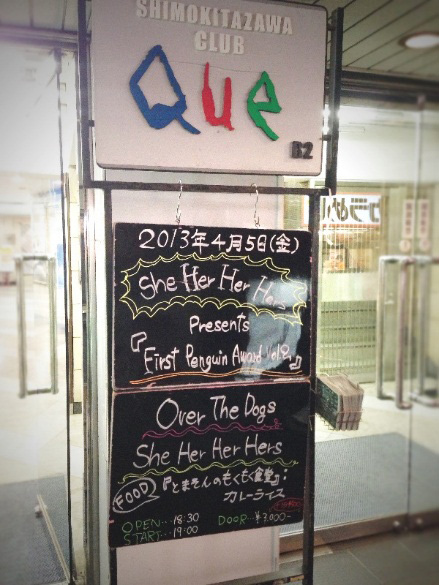 SHIMOKITAZAWA
CLUB
Que
B2
2013年4月5日(金)
She Her Her Hers
Presents
『First Penguin Award Vol.2』
Over The Dogs
She Her Her Hers
FOOD 『とまそんのもくもく食堂』:
カレーライス
OPEN… 18:30 DOOR… ¥3,000-
START… 19:00